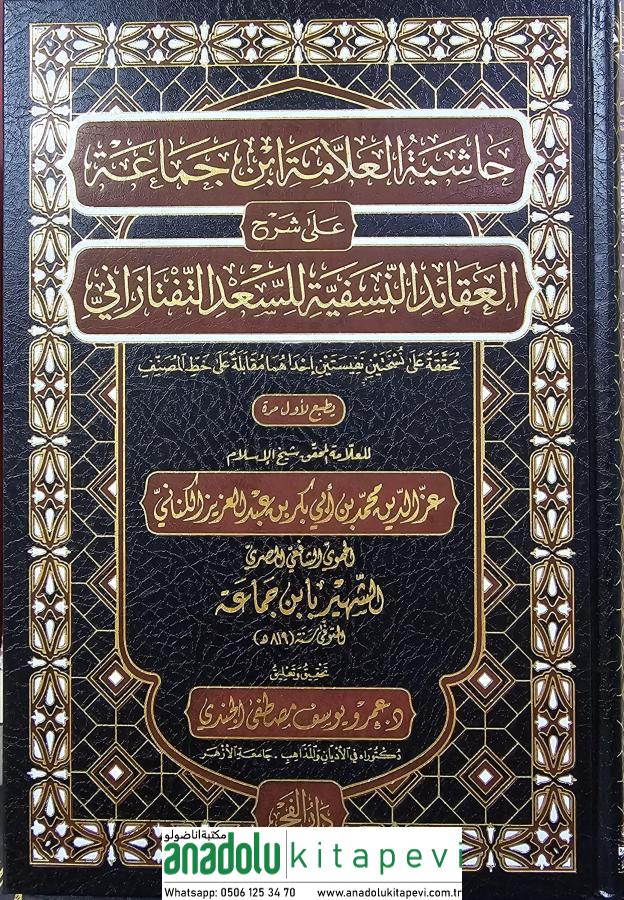 حَاشِيَةُ العَلَّامَةِ ابْنِ جَمَاعَة
عَلَى شَرْحِ
العَقَائِدِ النَّسَفِيَّةِ لِلسَّعْدِ التَّفْتَازَانِيِّ
مُحَقَّقَةٌ عَلَى نُسْخَتَيْنِ نَفِيسَتَيْنِ إِحْدَاهُمَا مُقَابَلَةٌ عَلَى خَطِّ المُصَنِّفِ
يطبع لأول مرة
للعلّامة المحقّق شيخ الإسلام
عزّ الدّين محمّد بن أبي بكر بن عبد العزيز الكنانيّ
الحمويّ الشافعيّ المصريّ
الشّهير بابن جماعة
المتوفّى سنة (٨١٩ هـ)
تحقيق وتعليق
د. عمرو يوسف مصطفى الجندي
دكتوراه في الأديان والمذاهب . جامعة الأزهر
دار الفجر
مكتبة اناضولو
anadolu kitapevi
Whatsapp: 0506 125 34 70 www.anadolukitapevi.com.tr